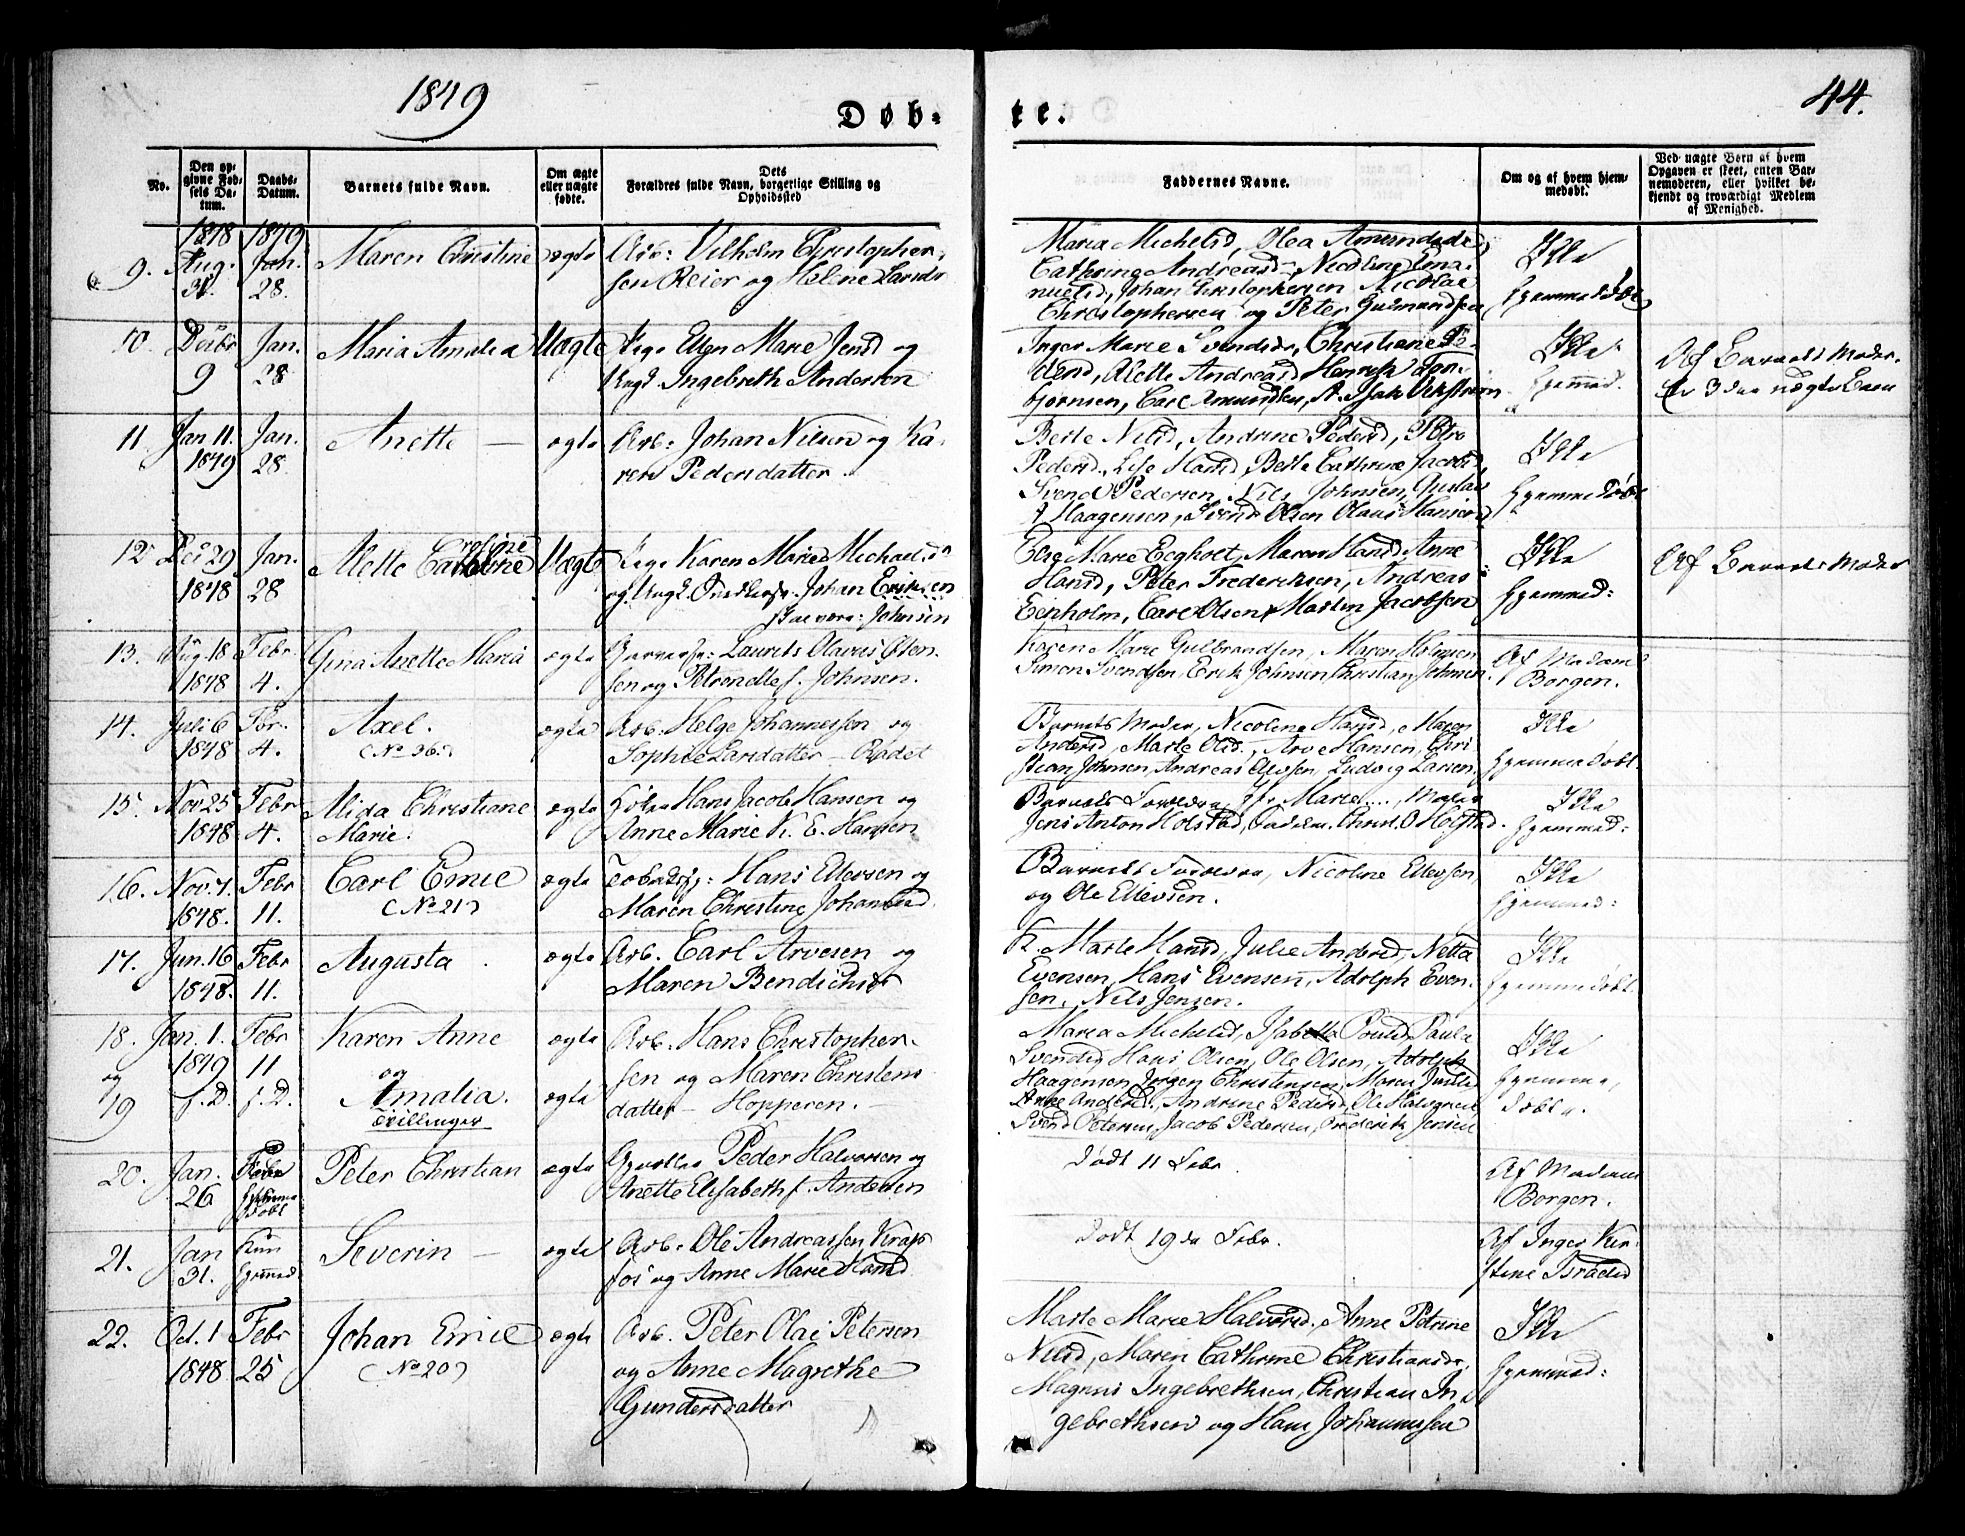 1849
44.
Døb-
te.
No.
Den op-
givne Fød-
sels Da-
tum.
Daabs-
Datum.
Barnets fulde Navn.
Om ægte
eller uægte
fødte.
Dets
Forældres fulde Navn, borgerlige Stilling og
Opholdssted
Faddernes Navne.
Om og af hvem hjem-
medøbt.
Ved uægte Børn af hvem
Opgaven er skeet, enten Bar-
nemoderen, eller hvilket be-
kjendt og troværdigt Medlem
af Menighed.
9.
1848
Aug.
31.
1849
Jan.
28.
Maren Christine
ægte
Arb: Vilhelm Christopher-
sen Reier og Helene Larsdr
Maria Michelsd, Olea Amundsd
Cathrine Andreasd, Nicoline Ema-
nuelsd, Johan Christophersen Nicolai
Christophersen og Peter Gudmundsen
Ikke
hjemmedøbt
10.
Decbr
9
Jan.
28
Maria Amalia
Uægte
Pige Ellen Marie Jensd og
Ungk Ingebreth Andersen
Inger Marie Svendsdr, Christiane Pe-
dersd, Alette Andreasd Henrik Tor-
bjørnsen, Carl Amundsen, A. Isak
Ikke
hjemmed.
Af Barnets Moder.
er 3die uægte Barn
11.
Jan 11.
1849
Jan.
28.
Anette —
ægte
Arb: Johan Nilsen og Ka-
ren Pedersdatter
Berte Nilsd, Andrine Pedersd, Petro
Pedersd, Lise Hansd, Berte Cathrine Jacobsd,
Svend Pedersen, Nils Johnsen, Gustav
Haagensen, Svend Olsen Olaus Hansen
Ikke
hjemmedøbt
12
Dec 29
1848
Jan.
28
Alette Caroline
Uægte
Pige Karen Marie Michaelsd
og Ungk. Johan Eriksen
Johnsen
Else Marie Eegholt, Maren Hansd Anne
Hansd, Peter Frederiksen, Andreas
Eenholm, Carl Olsen, Martin Jacobsen
Ikke
hjemmed:
Af Barnets Moder
13.
Aug. 18
1848
Febr.
4.
Gina Anette Maria
ægte
Laurits Olaves Olsen
sen og Petronelle f. Johnsen.
Karen Marie Gulbrandsen, Maren Holmsen
Simon Svendsen, Erik Johnsen Christian Johnsen.
Af Madame
Borgen.
14.
Juli 6
1848
Febr.
4.
Axel.
(No 36.)
ægte
Arb. Helge Johannessen og
Sophie Larsdatter — Rødet
Barnets Moder, Nicoline Hansd, Maren
Andersd, Marte Olsd., Arve Hansen, Chri
stian Johnsen, Andreas Olevsen, Ludvig Larsen.
Ikke
hjemmedøbt
15.
Nov 25
1848
Febr
4.
Alida Christiane
Marie.
ægte
Hans Jacob Hansen og
Anne Marie K. E. Hansen
Barnets Forældre, Jfr Marie ....,
Jens Anton Holstad, Christ. O Holstad.
Ikke
hjemmed:
16.
Nov. 7.
1848.
Febr
11.
Carl Emil
(No 21)
ægte
Hans Ellevsen og
Maren Christine Johannesd
Barnets Forældre, Nicoline Ellevsen,
og Ole Ellevsen.
Ikke
hjemmed:
17.
Jun. 16
1848.
Febr
11.
Augusta
ægte
Arb. Carl Arvesen og
Maren Bendichsdr
K. Marte Hansd, Julie Andersd, Netta
Evensen, Hans Evensen, Adolph Even-
sen, Nils Jensen.
Ikke
hjemmedøbt
18.
og
19
Jan. 1.
1849
f. D.
Febr
11
f. D.
Karen Anne
og
Amalia.
Tvillinger
ægte
ægte
Arb. Hans Christopher-
sen og Maren Christens
datter — Hopperen. —
Maria Michelsd, Isabella Poulsd, Paula
Svendsd, Hans Olsen, Ole Olsen, Adolph
Haagensen, Jørgen Christensen, Maren Juulsd
Anne Andersd., Andrine Pedersd, Ole Halvorsen
Svend Petersen, Jacob Pedersen, Frederik Jensen
Ikke
hjemme-
døbte.
20.
Jan.
26
Febr
Hjemme
døbt
Peter Christian
ægte
Peder Halvorsen og
Anette Elisabeth f. Andersen
Død 11 Febr.
Af Madame
Borgen.
21.
Jan
31.
Kun
hjemmed.
Severin —
ægte
Arb: Ole Andreassen Krap
fos og Anne Marie Hansd
Død 19de Febr.
Af Inger Kir-
stine Israelsd
22.
Oct. 1
1848
Febr
25
Johan Emil
(No 20)
ægte
Arb. Peter Olai Petersen
og Anne Magrethe
Gundersdatter
Marte Marie Halvorsd, Anne Petrine
Nilsd, Maren Cathrine Christiansdr,
Magnus Ingebrethsen, Christian In
gebrethsen og Hans Johannessen
Ikke
hjemmed: